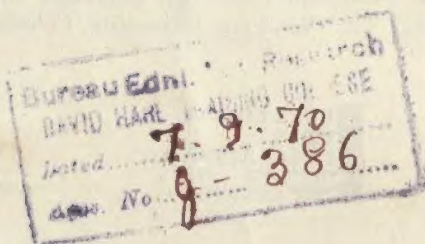 Bureau Ednl. Research
DAVID HARE TRAINING COLLEGE
Dated.......... 7. 9. 70
No......... - 386.....